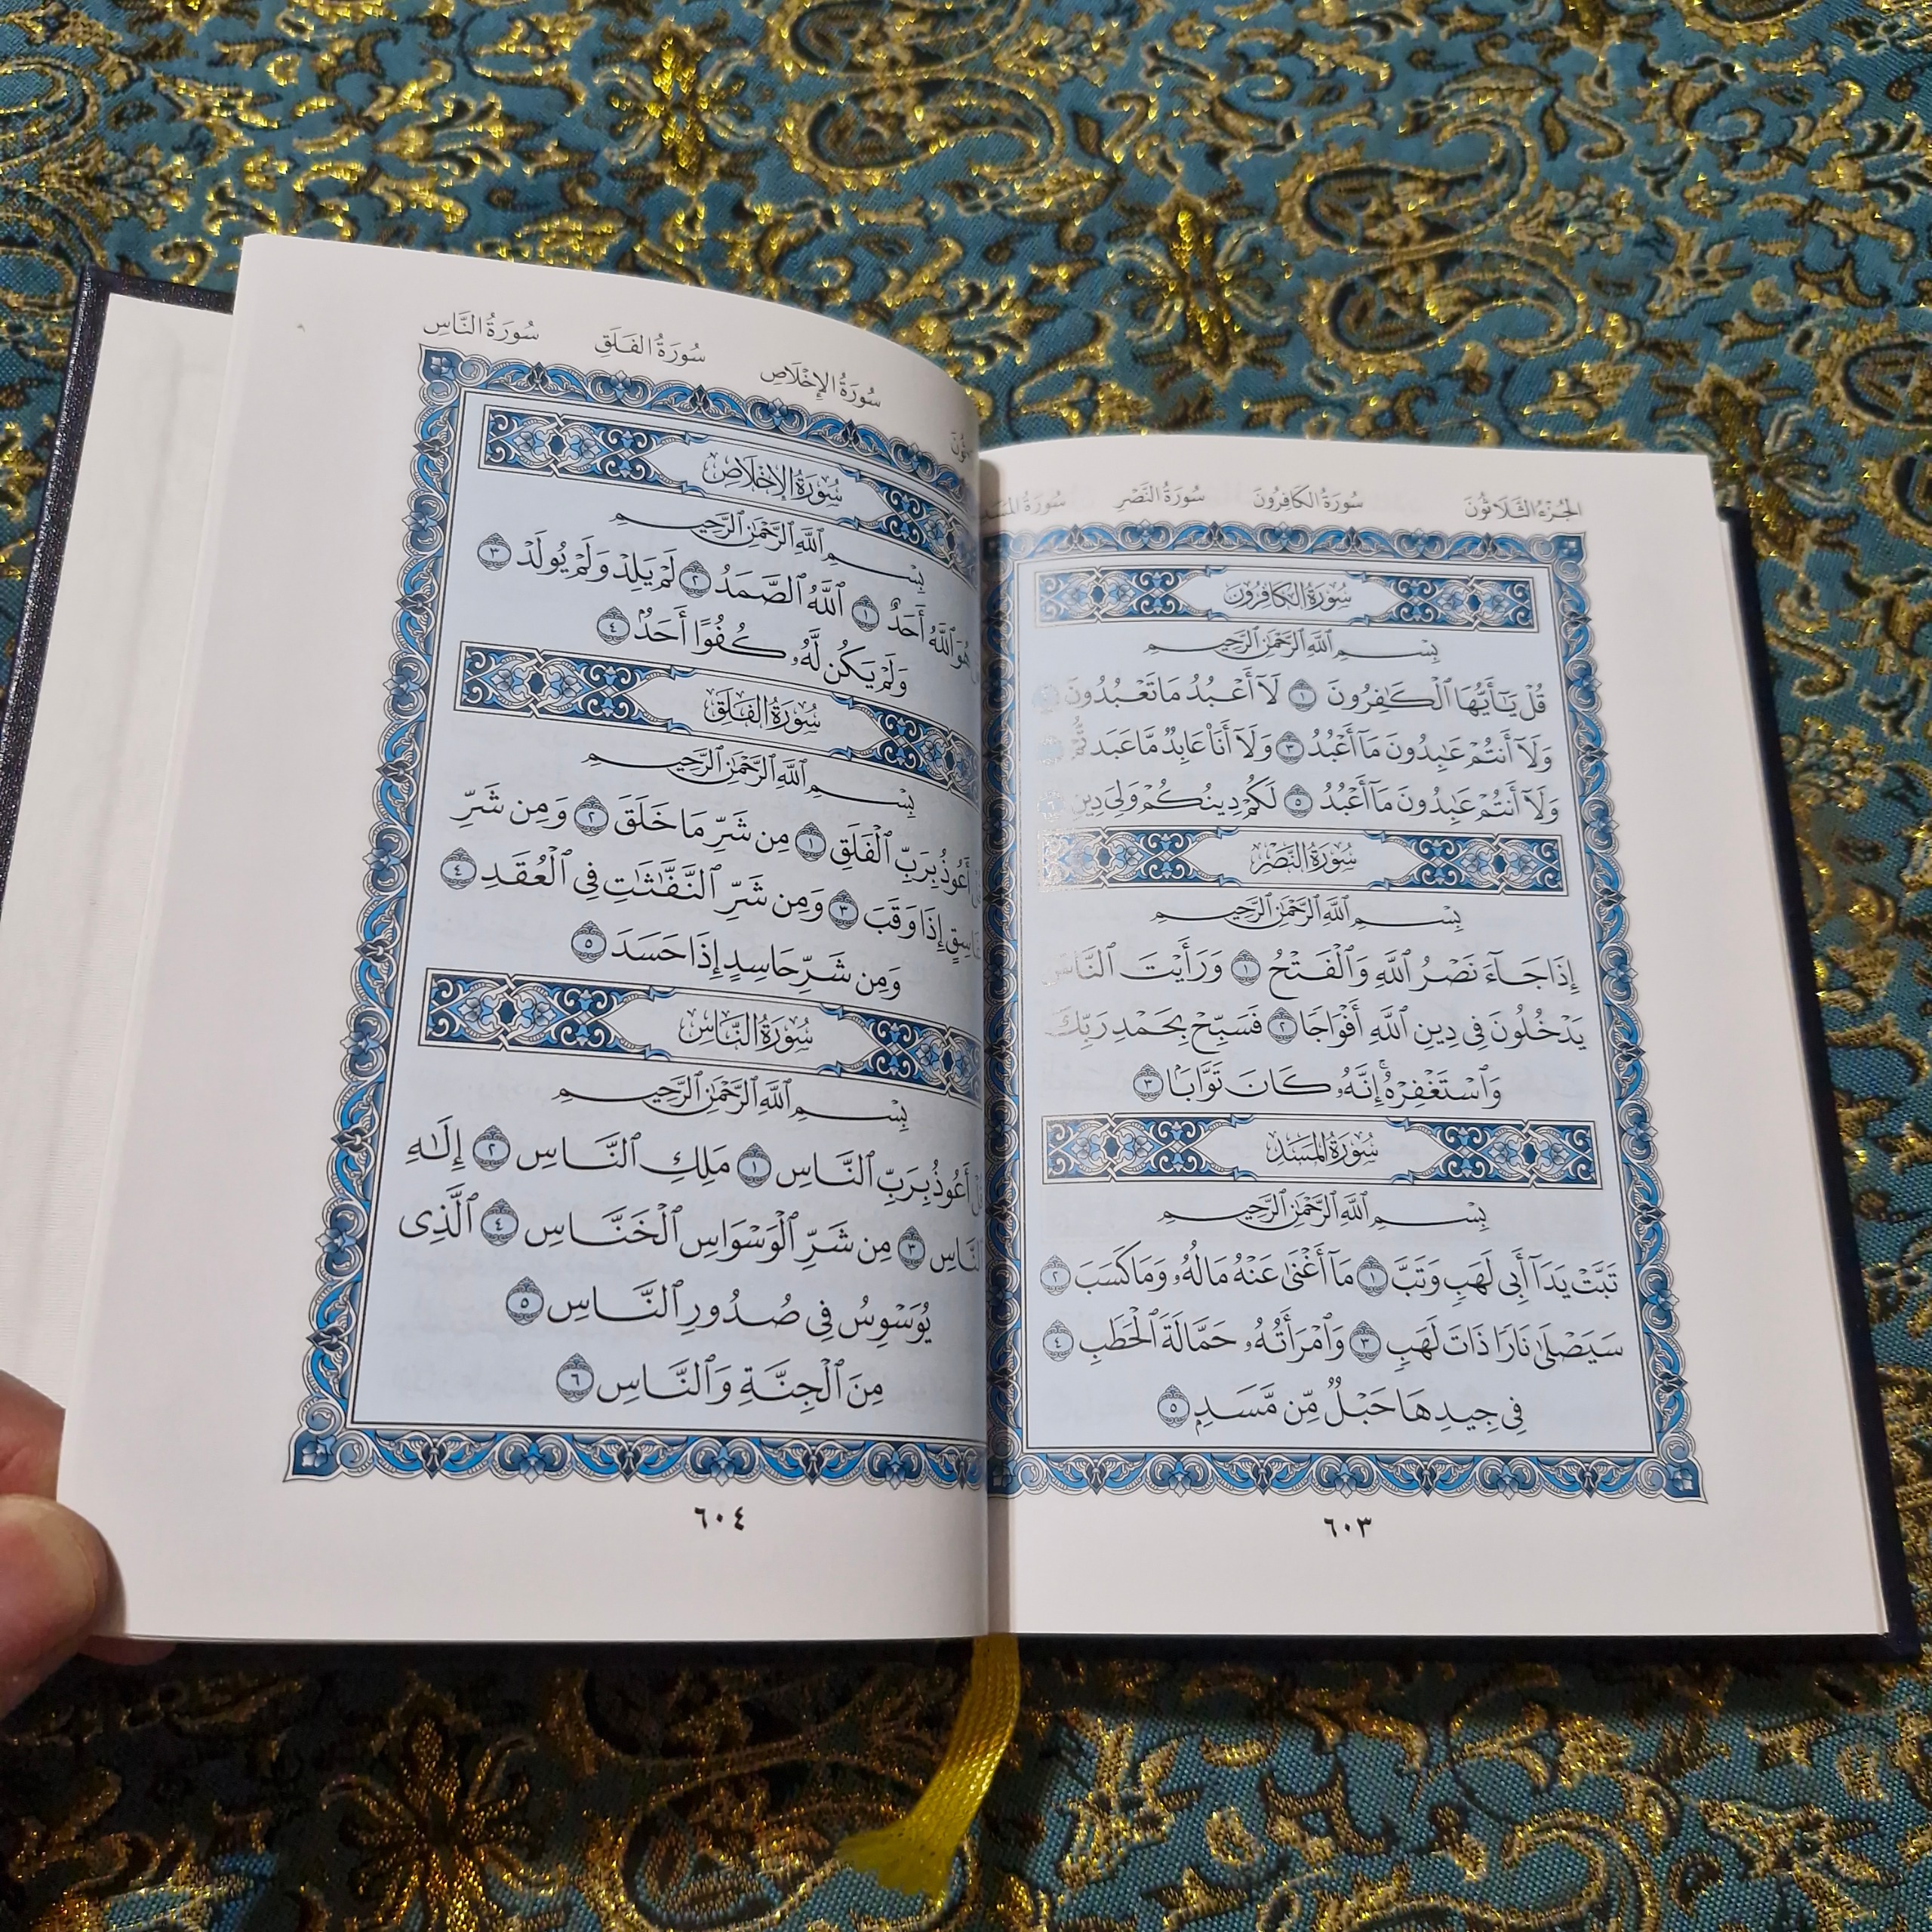 الجُزْءُ الثَّلَاثُونَ سُورَةُ الكَافِرُونَ سُورَةُ النَّصْرِ سُورَةُ المَسَد
سُورَةُ الكَافِرُونَ
بِسْمِ ٱللَّهِ ٱلرَّحْمَٰنِ ٱلرَّحِيمِ
قُلْ يَٰٓأَيُّهَا ٱلْكَٰفِرُونَ ١ لَآ أَعْبُدُ مَا تَعْبُدُونَ ٢
وَلَآ أَنتُمْ عَٰبِدُونَ مَآ أَعْبُدُ ٣ وَلَآ أَنَا۠ عَابِدٌ مَّا عَبَدتُّمْ
وَلَآ أَنتُمْ عَٰبِدُونَ مَآ أَعْبُدُ ٥ لَكُمْ دِينُكُمْ وَلِىَ دِينِ ٦
سُورَةُ النَّصْرِ
بِسْمِ ٱللَّهِ ٱلرَّحْمَٰنِ ٱلرَّحِيمِ
إِذَا جَآءَ نَصْرُ ٱللَّهِ وَٱلْفَتْحُ ١ وَرَأَيْتَ ٱلنَّاسَ
يَدْخُلُونَ فِى دِينِ ٱللَّهِ أَفْوَاجًا ٢ فَسَبِّحْ بِحَمْدِ رَبِّكَ
وَٱسْتَغْفِرْهُ ۚ إِنَّهُۥ كَانَ تَوَّابًۢا ٣
سُورَةُ المَسَدِ
بِسْمِ ٱللَّهِ ٱلرَّحْمَٰنِ ٱلرَّحِيمِ
تَبَّتْ يَدَآ أَبِى لَهَبٍ وَتَبَّ ١ مَآ أَغْنَىٰ عَنْهُ مَالُهُۥ وَمَا كَسَبَ ٢
سَيَصْلَىٰ نَارًا ذَاتَ لَهَبٍ ٣ وَٱمْرَأَتُهُۥ حَمَّالَةَ ٱلْحَطَبِ ٤
فِى جِيدِهَا حَبْلٌ مِّن مَّسَدٍۭ ٥
٦٠٣
سُورَةُ الإِخْلَاصِ سُورَةُ الفَلَقِ سُورَةُ النَّاسِ
سُورَةُ الإِخْلَاصِ
بِسْمِ ٱللَّهِ ٱلرَّحْمَٰنِ ٱلرَّحِيمِ
هُوَ ٱللَّهُ أَحَدٌ ١ ٱللَّهُ ٱلصَّمَدُ ٢ لَمْ يَلِدْ وَلَمْ يُولَدْ ٣
وَلَمْ يَكُن لَّهُۥ كُفُوًا أَحَدٌۢ ٤
سُورَةُ الفَلَقِ
بِسْمِ ٱللَّهِ ٱلرَّحْمَٰنِ ٱلرَّحِيمِ
أَعُوذُ بِرَبِّ ٱلْفَلَقِ ١ مِن شَرِّ مَا خَلَقَ ٢ وَمِن شَرِّ
إِذَا وَقَبَ ٣ وَمِن شَرِّ ٱلنَّفَّٰثَٰتِ فِى ٱلْعُقَدِ ٤
وَمِن شَرِّ حَاسِدٍ إِذَا حَسَدَ ٥
سُورَةُ النَّاسِ
بِسْمِ ٱللَّهِ ٱلرَّحْمَٰنِ ٱلرَّحِيمِ
أَعُوذُ بِرَبِّ ٱلنَّاسِ ١ مَلِكِ ٱلنَّاسِ ٢ إِلَٰهِ
ٱلنَّاسِ ٣ مِن شَرِّ ٱلْوَسْوَاسِ ٱلْخَنَّاسِ ٤ ٱلَّذِى
يُوَسْوِسُ فِى صُدُورِ ٱلنَّاسِ ٥
مِنَ ٱلْجِنَّةِ وَٱلنَّاسِ ٦
٦٠٤